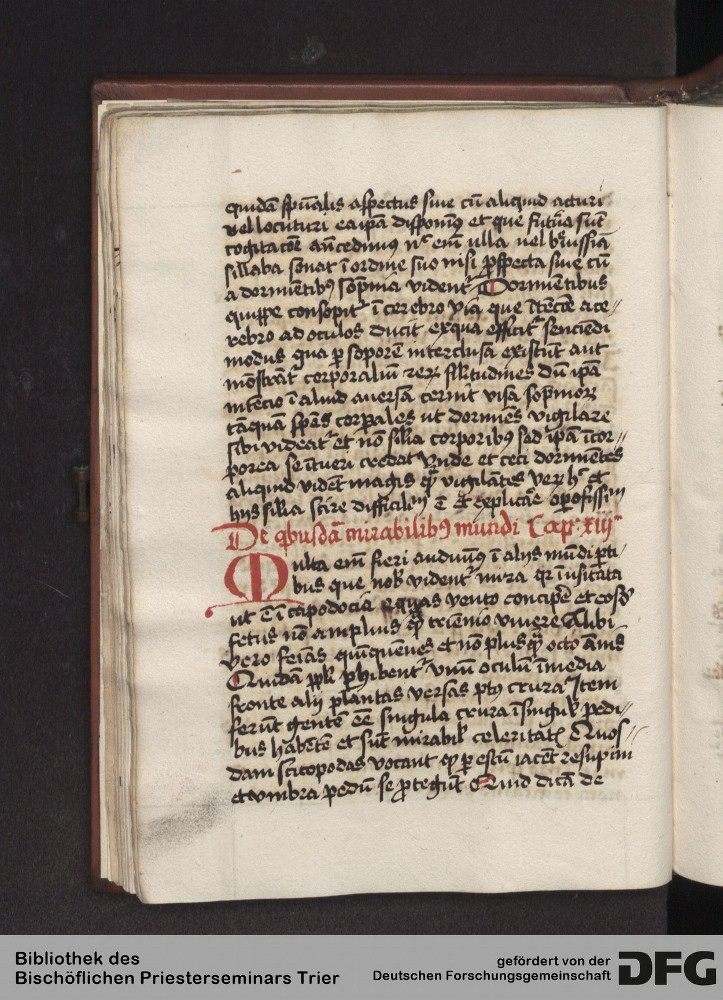 quidā spūalis aspectus siue cū aliquid acturi
vel locuturi ea ipā disponimꝯ et que futura sūt
cogitacōe antecedimus nec em̄ ulla vel breuissīa
sillaba sonat ī ordine suo nisi pspecta siue cū
a dormientibꝯ sompnia videntr̄ Dormientibus
quippe consopitr̄ ī cerebro via que ītēcōe a ce//
rebro ad oculos ducit ex qua efficitr̄ senciēdi
modus qua p soporē interclusa existūt aut
mōstrātr̄ corporaliū reꝝ silitudines dū ipā
intēcio ī aliud auersa cernit visa sompnioꝝ
tāquam spēs corpales ut dormiēs vigilare
sibi videatr̄ et nō silia corporibꝯ sed ipā īcor//
porea se ītueri credat vnde et ceci dormientes
aliquid vidēt magis qͣ vigilātes veꝝ hͨ et
hijs silia scire difficiliꝯ ē et explicare oposissimū
De qͥbusdā mirabilibꝯ mundi Cap. xiijᵐ
Multa em̄ fieri audimꝯ ī alijs mūdi pti/
bus que nobͥ videntr̄ mira qꝛ īusitata
ut ē ī capodocia equas vento concipe et eosdē
fetus nō amplius qͣ triēnio viuere Alibi
vero feīas quīquēnes et nō plusqͣ octo ānis
Quidā ppli phibentr̄ vnū oculū ī media
fronte alij plantas versas post crura Item
ferūt gentē eē singula crura ī singulͥ pedi//
bus habētē et sūt mirabilͥ celeritatͥ Quos//
dam scitopodas vocant qꝫ p estū iacēt resupini
et vmbra pedū se ptegūt Quid dicā de
Bibliothek des
Bischöflichen Priesterseminars Trier
gefördert von der
Deutschen Forschungsgemeinschaft DFG